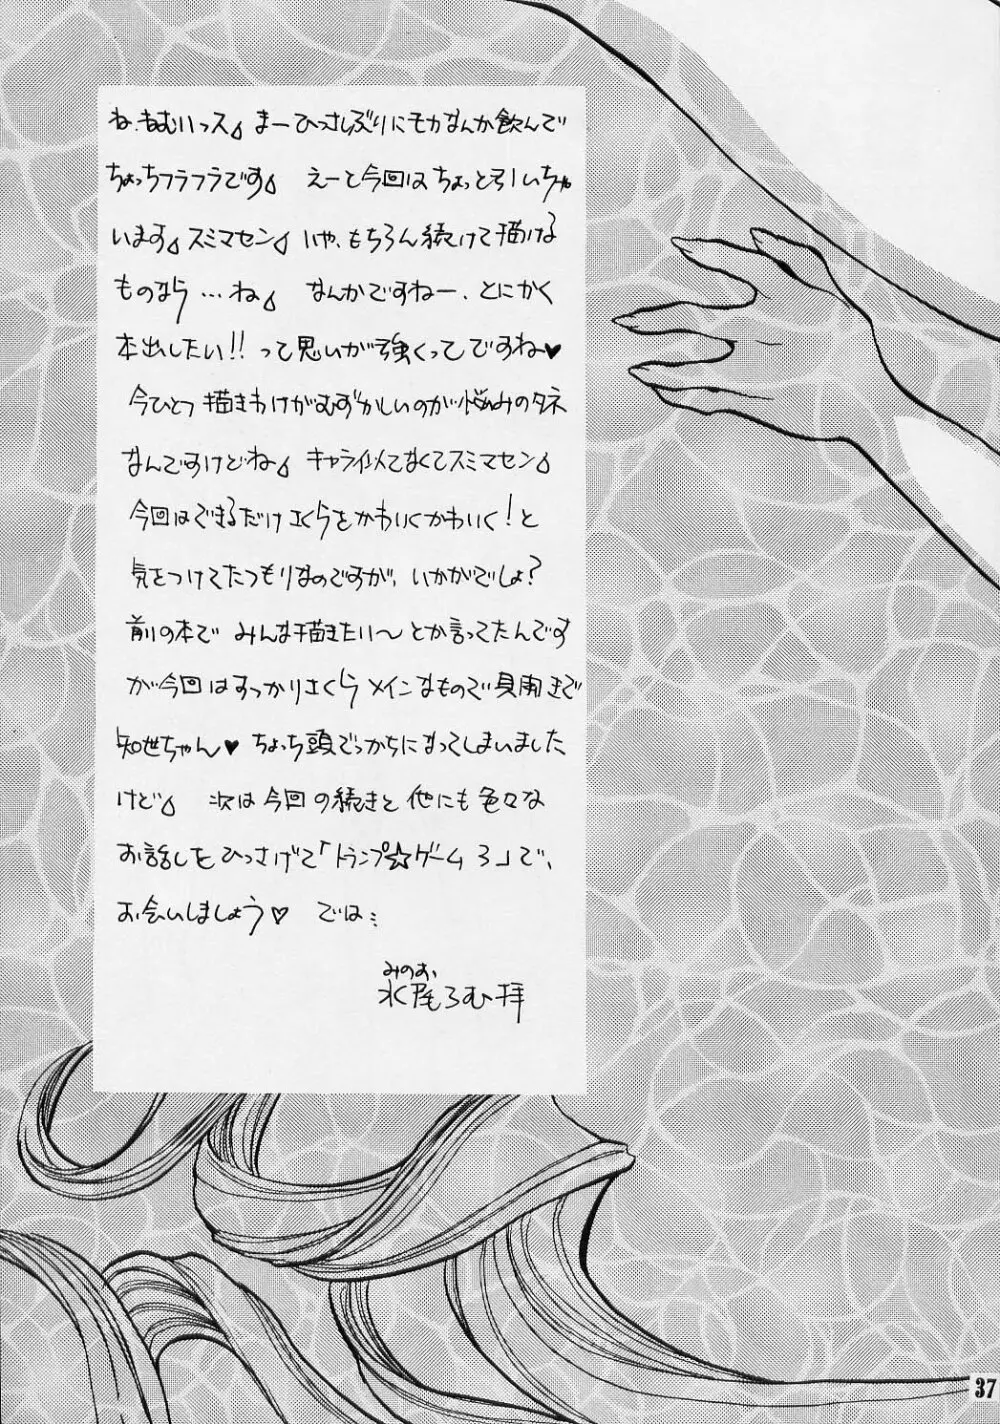 ね、ねむいっス♪ まーひっさしぶりにモカなんか飲んで
ちょっちフラフラです♪ えーと今回はちょっと引いちゃ
います♪ スミマセン♪ いや、もちろん続けて描ける
ものなら…ね♪ なんかですねー、とにかく
本出したい!! って思いが強くってですね♥
今ひとつ描きわけがむずかしいのが悩みのタネ
なんですけどね♪ キャラ似てなくてスミマセン♪
今回はできるだけさくらをかわいくかわいく!と
気をつけてたつもりなのですが、いかがでしょ?
前の本で みんな描きたい〜とか言ってたんです
が今回はすっかりさくらメインなもので見開きで
知世ちゃん♥ ちょっち頭でっかちになってしまいました
けど♪ 次は今回の続きと他にも色々な
お話しをひっさげて「トランプ☆ゲーム3」で、
お会いしましょう♡ では…
みのお
水尾ろむ拝
37